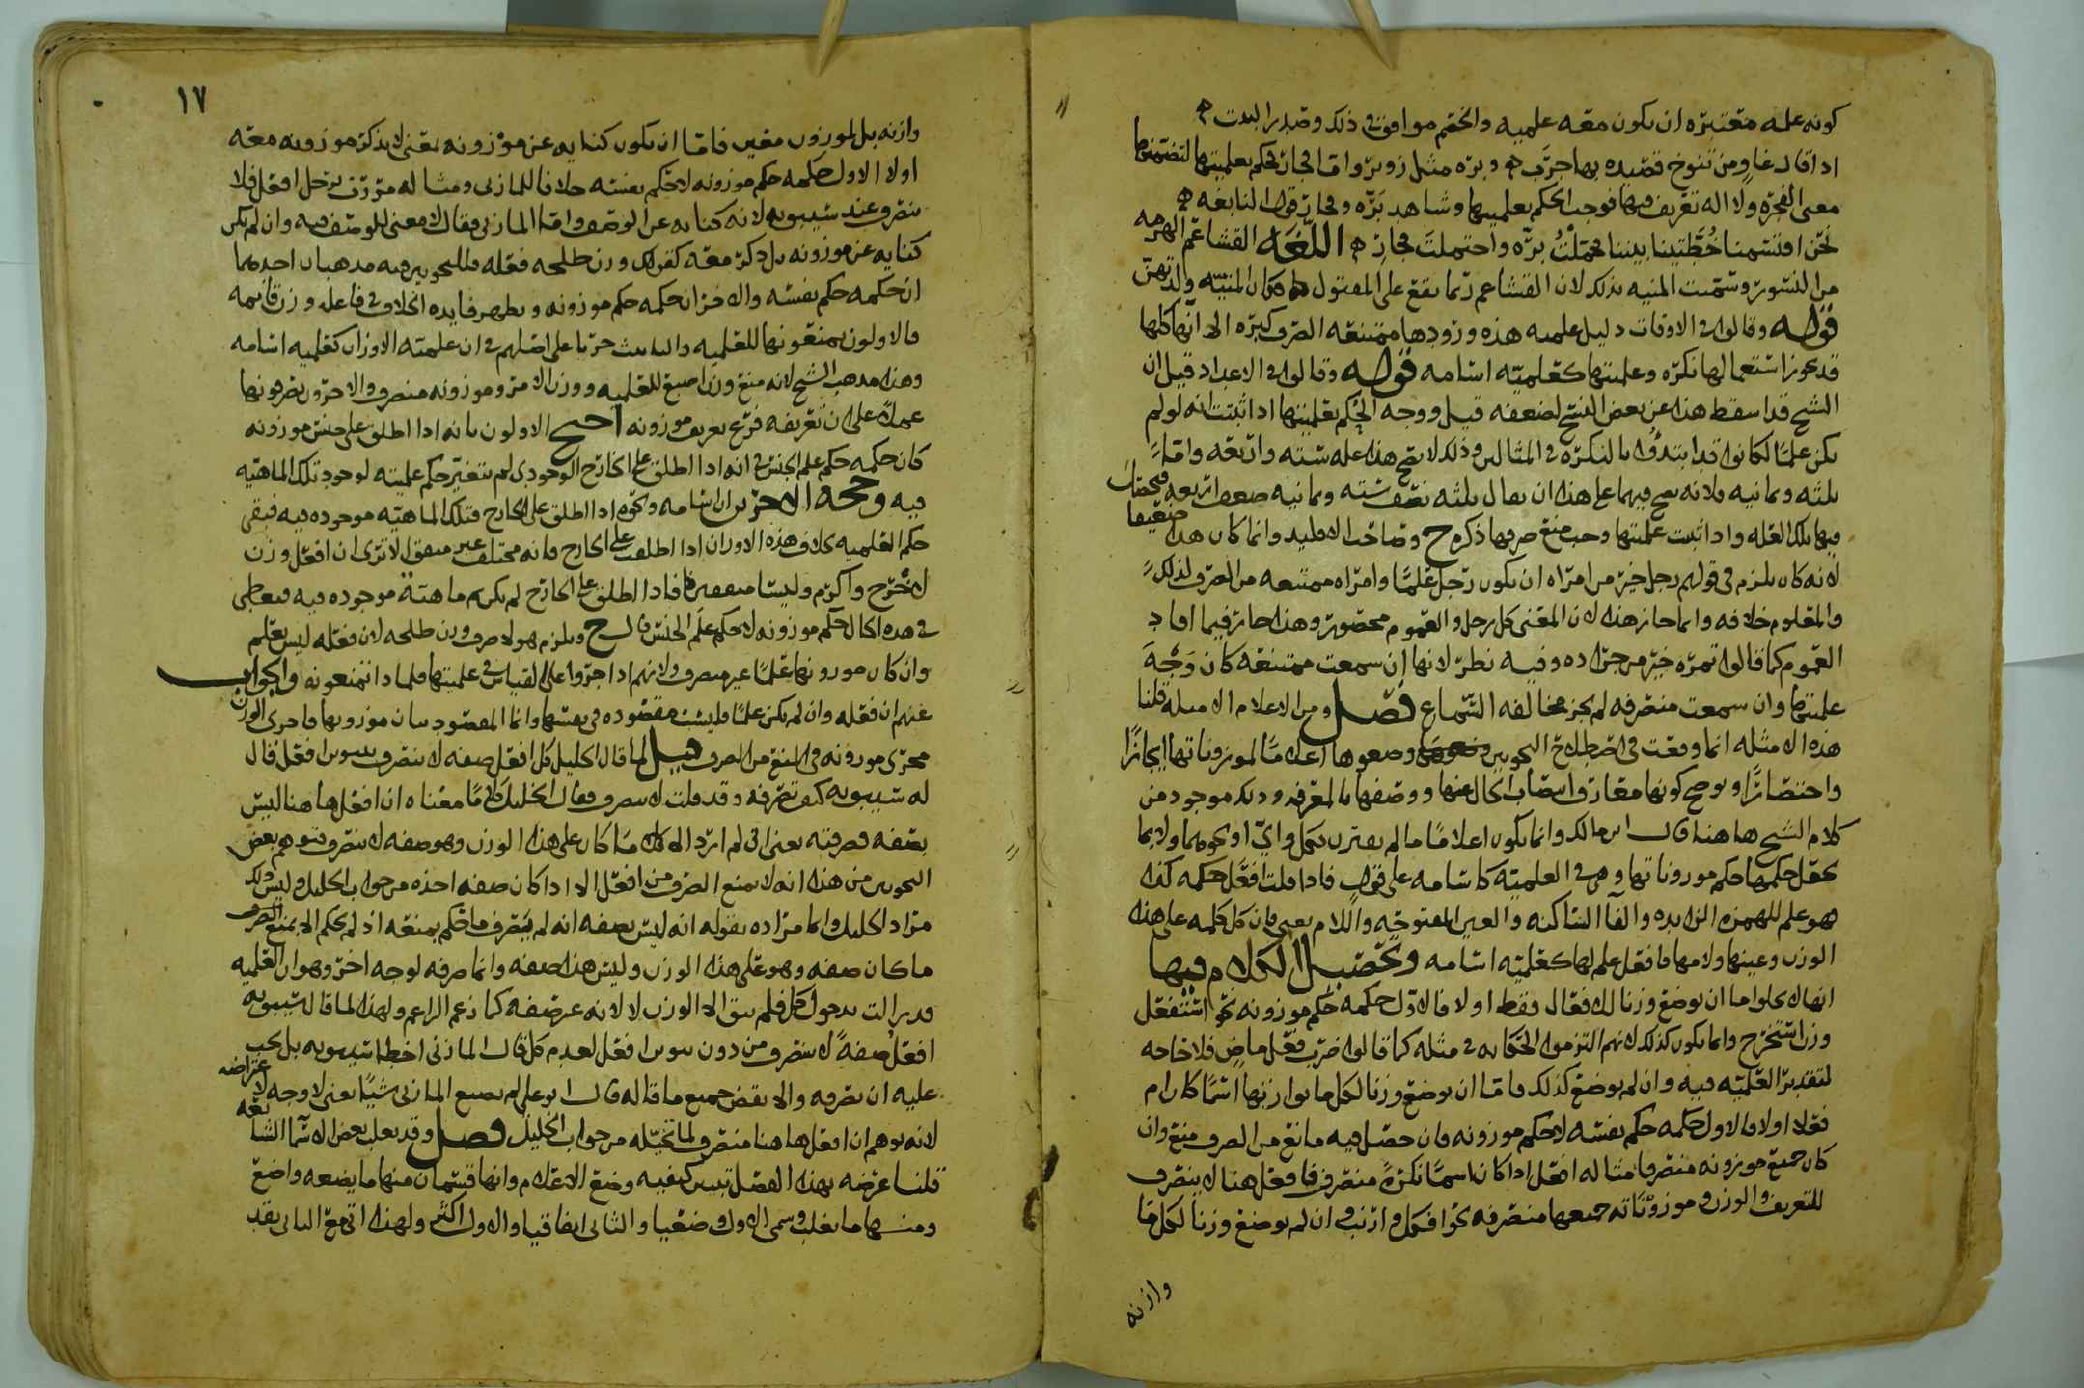 كونه علمه معتبره ان يكون معه علميه والخصم موافق في ذلك وصدر البيت
اذا قال غاوٍ من تنوخ قصيده بها جرَب وبره مثل زوبر واما فجار فحكم بعلميتها لتضمنها
معنى الفجره ولا اله تعريف فيها فوجب الحكم بعلميتها وشاهد بَرّه وفجار قول النابغه
نحن اقتسمنا خُطّتينا بيننا فحملتُ برّه واحتملتَ فجار اللغه القشاعم الهرمه
من النسور وسميت المنيه بذلك لان القشاعم ربما يقع على المقتول
قوله وقالوا في الاوقات دليل علميه هذه ورودها ممتنعه الصرف كثيره الا انها كلها
قد يجوز استعمالها نكره وعلميتها كعلميه اسامه قوله وقالوا في الاعداد قيل ان
الشيخ قد اسقط هذا عن بعض النسخ لضعفه قيل ووجه الحكم بعلميتها اذا ثبتت انه لو لم
يكن علمًا لكانوا قد ابتدؤا بالنكره في المثالين وذلك لا يصح هذا علمه سته واربعه واما
ثلثه وثمانيه فلانه يصح فيهما على هذا ان يقال ثلثه نصف سته وثمانيه ضعف اربعه
فيها تلك العله واذا ثبت علميتها وجب منع صرفها ذكره ح وصاحب الاقليد وانما كان هذا ضعيفا
لانه كان يلزم في قولهم رجل خير من امراه ان يكون رجل علمًا وامراه ممتنعه من الصرف لذلك
والمعلوم خلافه وانما جاز هذا لان المعنى كل رجل والعموم محصور وهذا جائز فيما افاد
العموم كما قالوا تمره خير من جراده وفيه نظر لانها ان سمعت ممتنعه كان وَجْهَ
علميتها وان سمعت منصرفه لم يجز مخالفه السماع فصل ومن الاعلام الامثله قلنا
هذه الامثله انما وقعت في اصطلاح النحويين وضعوها اعلامًا لموزوناتها ايجازًا
واختصارًا ويوضح كونها معارف انتصاب الحال عنها ووصفها بالمعرفه وذلك موجود من
كلام الشيخ هاهنا قال ابن مالك وانما يكون اعلامًا ما لم يقترن بكل واي او نحوهما ولا بما
يجعل حكمها حكم موزوناتها وهي في العلميه كاسامه على قول فاذا قلت افعل حكمه كذا
هو علم للهمزه الزايده والفاء الساكنه والعين المفتوحه واللام يعني فان كل كلمه على هذه
الوزن وعينها ولامها فافعل علم لها كعلميه اسامه وتحصيل الكلام فيها
انها لا يخلوا اما ان يوضع وزنا للافعال فقط اولا فالاول حكمه حكم موزونه نحو استفعل
وزن استخرج وانما يكون كذلك لانهم التزموا الحكايه في مثله كما قالوا ضرب فعل ماضٍ فلا حاجه
لتقدير العلميه فيه وان لم يوضع كذلك فاما ان يوضع وزنا لكل ما يوازنها اسمًا كان ام
فعلا اولا فالاول حكمه حكم نفسه لا حكم موزونه فان حصل فيه مانع من الصرف منع وان
كان جميع موزونه منصرفا مثاله افعل اذا كان اسمًا نكرةً منصرف فافعل هنا لا ينصرف
للتعريف والوزن وموزوناته جميعها منصرفه نحو افكل وارنب وان لم يوضع وزناً لكل ما
وازنه
١٧
وازنه بل لموزون معين فاما ان يكون كنايه عن موزونه بمعنى لا يذكر موزونه معه
اولا الاول حكمه حكم موزونه لا حكم نفسه خلافا للمازني ومثاله مررت برجل افعل فلا
ينصرف عند سيبويه لانه كنايه عن الوصف واما المازني فقال لا معنى للوصف فيه وان لم يكن
كنايه عن موزونه بل ذكر معه كقولك وزن طلحه فعله فللنحويين فيه مذهبان احدهما
ان حكمه حكم نفسه والاخر ان حكمه حكم موزونه ويظهر فايده الخلاف في فاعله وزن قايمه
فالاولون يمنعونها للعلميه والتانيث جريا على اصلهم في ان علميه الاوزان كعلميه اسامه
وهذا مذهب الشيخ لانه منع وزن اصبع للعلميه ووزن الامر وموزونه منصرف والاخرون يصرفونها
عملًا على ان تعريفه فرع تعريف موزونه احتج الاولون بانه اذا اطلق على جنس موزونه
كان حكمه حكم علم الجنس في انه اذا اطلق على الخارج الوجودي لم يتغير حكم علميته لوجود تلك الماهيه
فيه وحجه الاخرين ان اسامه ونحوه اذا اطلق على الخارج فتلك الماهيه موجوده فيه فبقي
حكم العلميه بخلاف هذه الاوزان اذا اطلقت على الخارج فانه مختلف غير متفق الا ترى ان افعل وزن
لاخْرَج واكرم وليسا متفقين فاذا اطلق على الخارج لم يكن ماهيّة موجوده فيه فيعطى
في هذه الحال حكم موزونه لا حكم علم الجنس قال ح ويلزم هولا صرف وزن طلحه لان فعله ليس بعلم
وان كان موزونها علمًا غير منصرف ولانهم اذا اجروا على القياس في علميتها فلماذا تمنعونه والجواب
عنهم ان فعله وان لم يكن علمًا فليست مقصوده في نفسها وانما المقصود بيان موزونها فاجرى الوزن
مجرى موزونه في المنع من الصرف قيل لما قال الخليل كل افعل صفه لا ينصرف بتنوين افعل قال
له سيبويه كيف تصرفه وقد قلت لا ينصرف فقال الخليل كلامًا معناه ان افعل هاهنا ليس
بصفه فصرفته يعني اني لم ارد الا كل ما كان على هذا الوزن وهو صفه لا ينصرف فتوهم بعض
النحويين من هذا انه لا يمنع الصرف من افعل الا اذا كان صفه اخذه من جواب الخليل وليس ذلك
مراد الخليل وانما مراده بقوله انه ليس بصفه انه لم ينصرف ما حكم بمنعه اذ لم يحكم الا بمنع الصرف
ما كان صفه وهو على هذا الوزن وليس هذا صفه وانما صرفه لوجه اخر وهو ان العلميه
قد زالت بدخول كل فلم يبق الا الوزن لا لانه غير صفه كما زعم الزاعم ولهذا لما قال سيبويه
افعلُ صفهً لا ينصرف من دون تنوين افعل لعدم كل قال المازني اخطا سيبويه بل يجب
عليه ان يصرفه والا نقض جميع ما قاله قال ابو علي لم يصنع المازني شيًا يعني لا وجه لاعتراضه
لانه توهم ان افعل هاهنا منصرف لما تخيّله من جواب الخليل فصل وقد يغلب بعض الاسما الشائعه
قلنا غرضه بهذا الفصل تبيين كيفيه وضع الاعلام وانها قسمان منها ما يضعه واضع
ومنها ما يغلب وسمي الاول وضعيا والثاني اتفاقيا والاول اكثر ولهذا اتى مع الثاني بقد